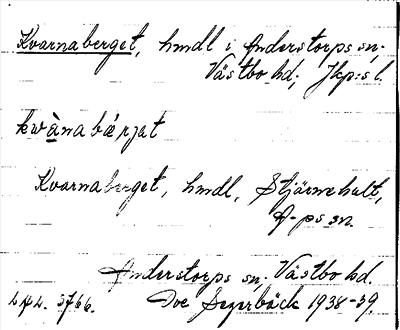 Kvarnaberget, hmdl i Anderstorps sn.
Västbo hd, Jkp:s l.
kwànabærjat
Kvarnaberget, hmdl, Stjärnehult,
A-ps sn.
Anderstorps sn, Västbo hd.
LAL. 3766. Ove Segerbäck 1938-39.